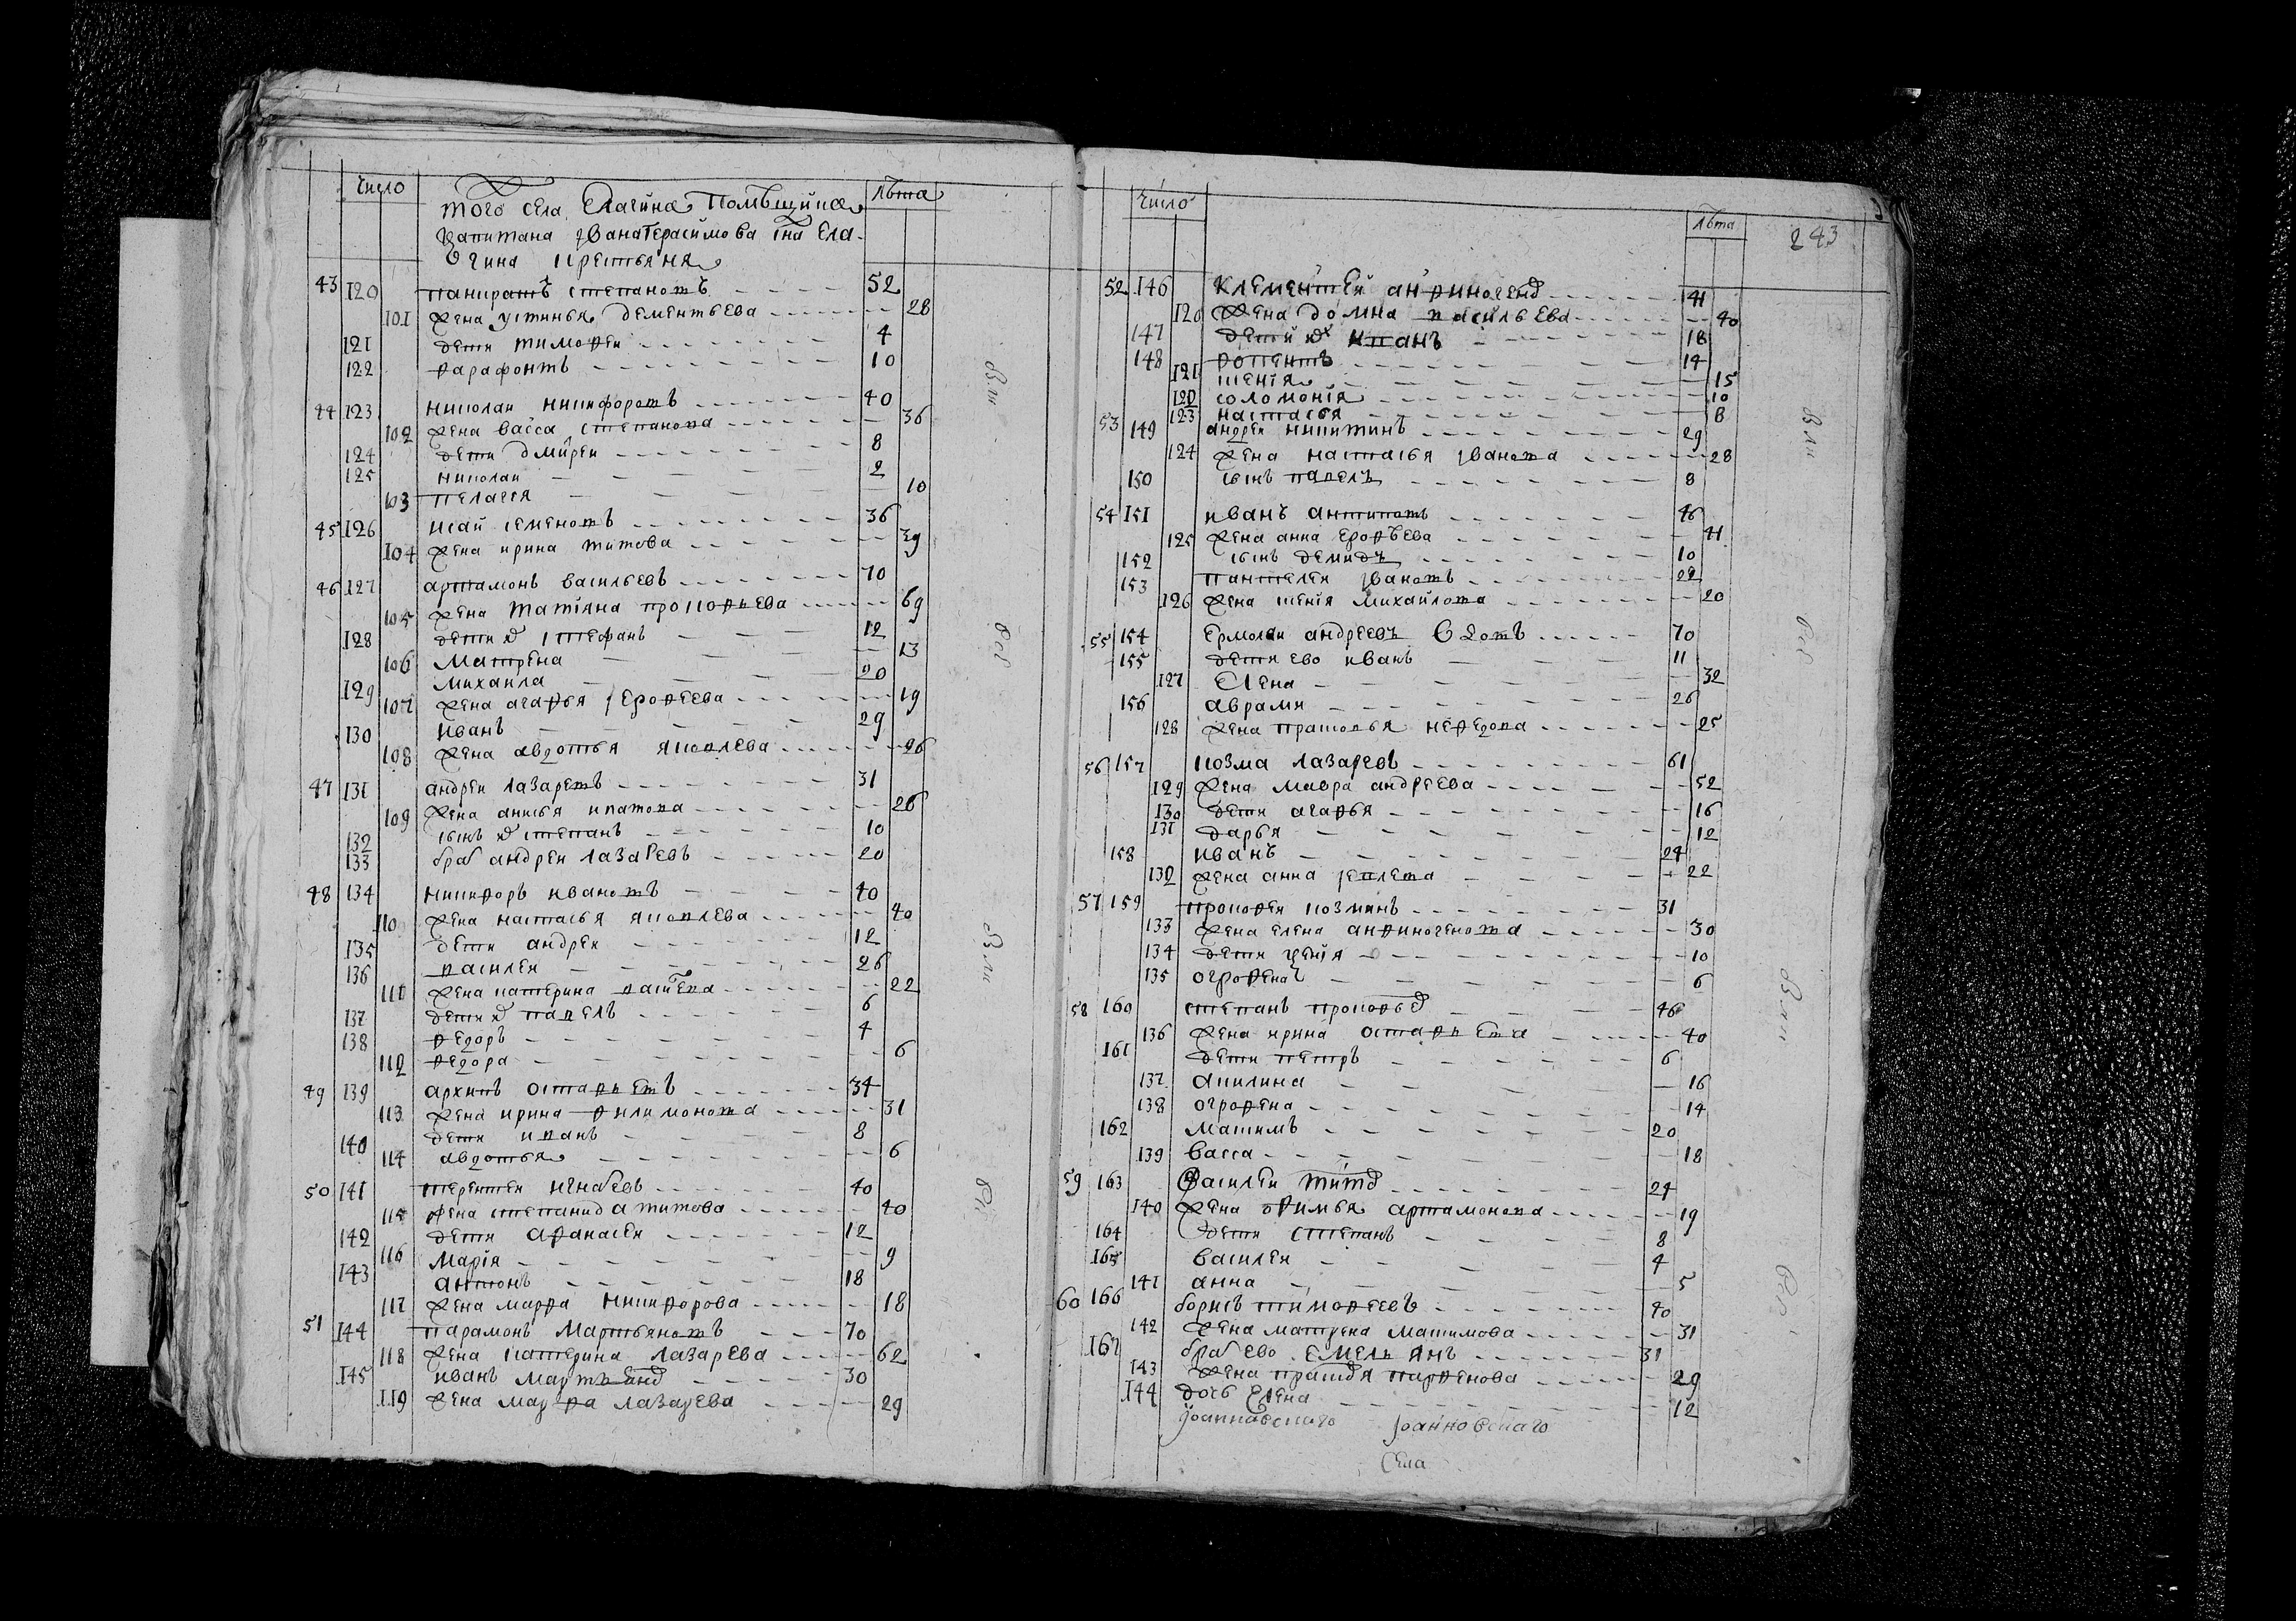 число
лѣта
того села Елагина Помѣщика
капитана Ивана Герасимова сна Ела-
гина крестьяня
43 120 панкратъ степановъ 52
101 жена устинья дементьева 28
121 дети тимофеи 4
122 фарафонтъ 10
44 123 николаи никифоровъ 40
102 жена васса степанова 36
124 дети дмитреи 8
125 николаи 2
103 пелагея 10
45 126 исаи семеновъ 36
104 жена ирина титова 39
46 127 артамонъ васильевъ 70
105 жена татіяна прокофьева 69
128 дети ѿ стефанъ 12
106 матрена 13
129 михаила 20
107 жена агафья ерофеева 19
130 иванъ 29
108 жена авдотья яковлева 26
47 131 андреи лазаревъ 31
109 жена анисья ипатова 26
132 сынъ степанъ 10
133 братъ андреи лазаревъ 20
48 134 никифоръ ивановъ 40
110 жена настасья яковлева 40
135 дети андреи 12
136 василеи 26
111 жена катерина 22
137 дети павелъ 6
138 федоръ 4
112 федора 6
49 139 архипъ остафьевъ 34
113 жена ирина филимонова 31
140 дети иванъ 8
114 авдотья 6
50 141 терентеи игнатьевъ 40
115 жена степанида титова 40
142 дети афанасеи 12
116 марія 9
143 антонъ 18
117 жена марфа никифорова 18
51 144 парамонъ мартьяновъ 70
118 жена катерина лазарева 62
145 иванъ мартьяновъ 30
119 жена марфа лазарева 29
243
число
лѣта
52 146 клементеи андриногеновъ 41
120 жена домна васильева 40
147 дети иванъ 18
148 14
121 15
122 соломонія 10
123 настасья 8
53 149 андреи никитинъ 29
124 жена настасья иванова 28
150 сынъ павелъ 8
54 151 иванъ антиповъ 46
125 жена анна ерофѣева 41
152 сынъ демидъ 10
153 пантелеи ивановъ 22
126 жена михаилова 20
55 154 ермолаи андреевъ вдовъ 70
155 дети ево иванъ 11
127 елена 32
156 аврамъ 26
128 жена прасковья нефедова 25
56 157 козма лазаревъ 61
129 жена мавра андреева 52
130 дети агафья 16
131 дарья 12
158 иванъ 24
132 жена анна 22
57 159 прокофеи козминъ 31
133 жена елена андриногенова 30
134 дети 10
135 огрофена 6
58 160 степанъ прокофьевъ 46
136 жена ирина остафьева 40
161 дети петръ 6
137 акилина 16
138 огрофена 14
162 максимъ 20
139 васса 18
59 163 василеи титовъ 24
140 жена офимья артамонова 19
164 дети степанъ 8
165 василеи 4
141 анна 5
60 166 борисъ тимофеевъ 40
142 жена матрена максимова 31
167 братъ ево емельянъ 31
143 жена парфенова 29
144 дочь елена 12
Іоанновскаго Іоанновскаго
села